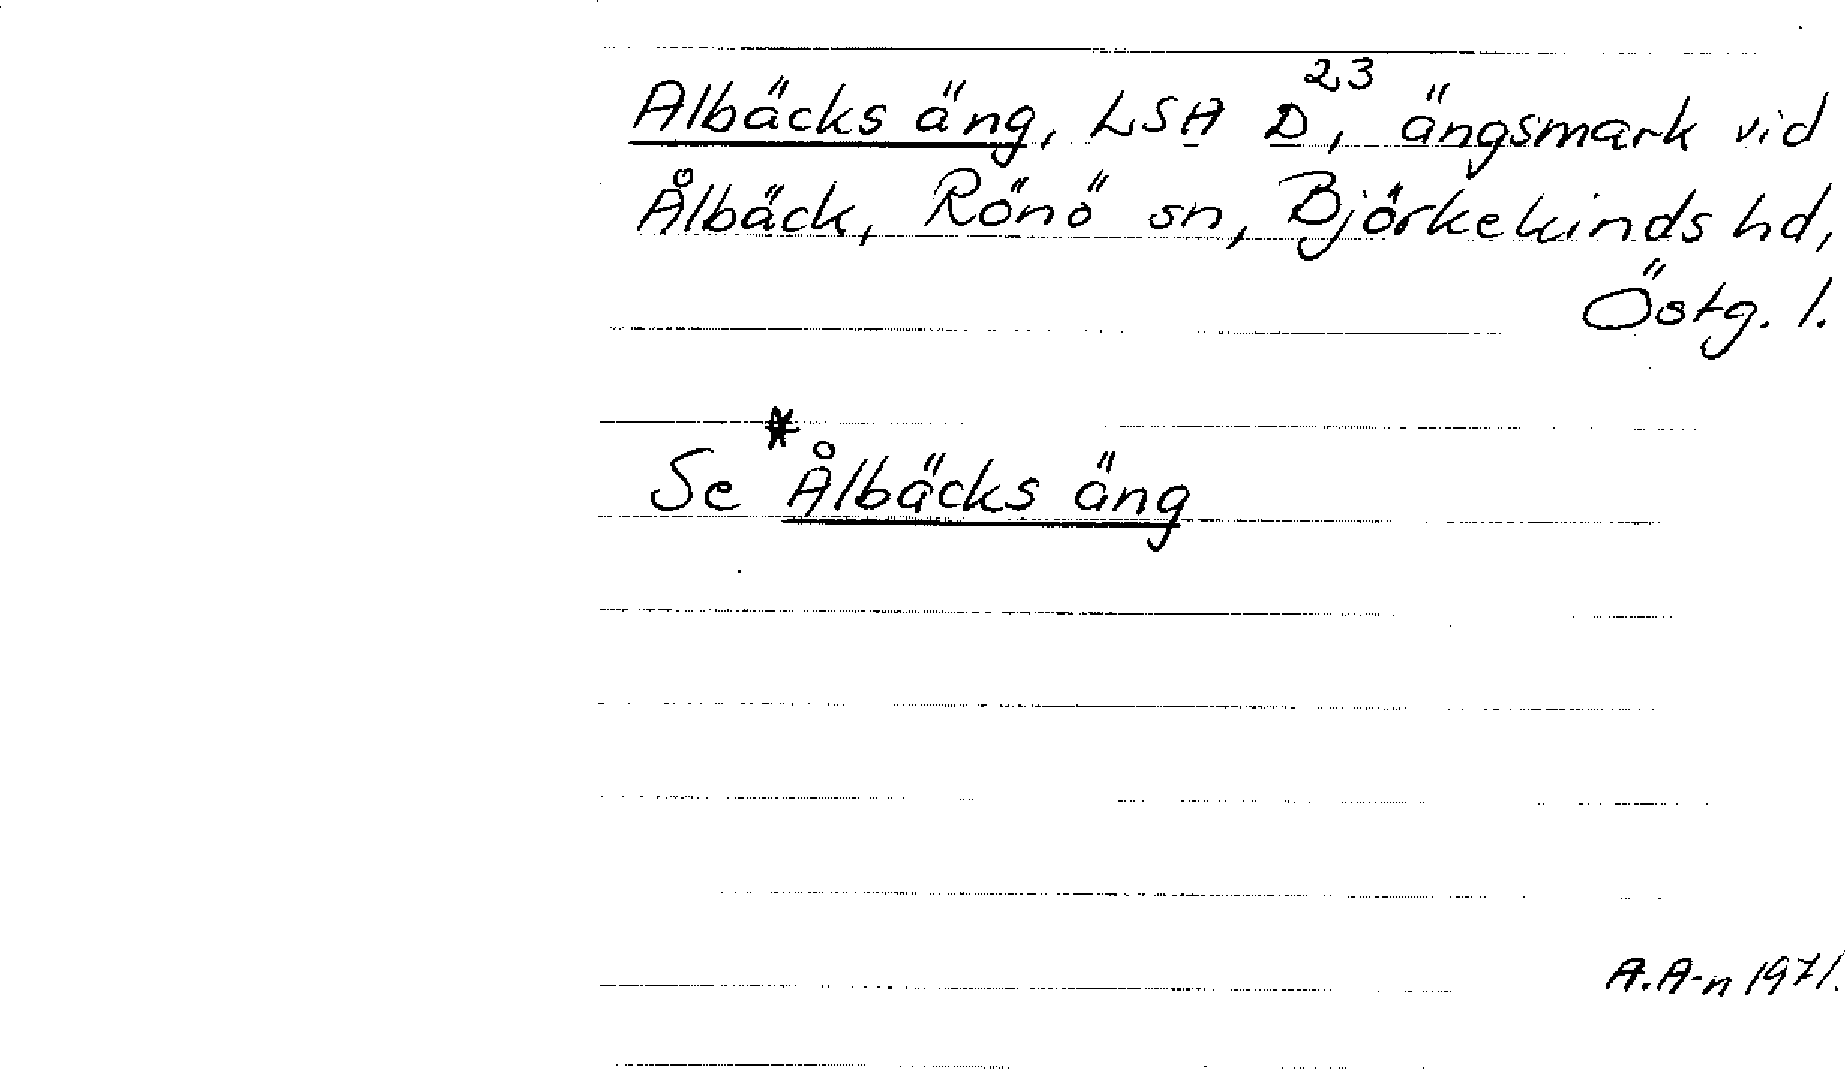 Albäcks äng, LSA D23, ängsmark vid
Ålbäck, Rönö sn, Björkekinds hd,
Östg. l.
Se *Ålbäcks äng
A.A-n 1971.